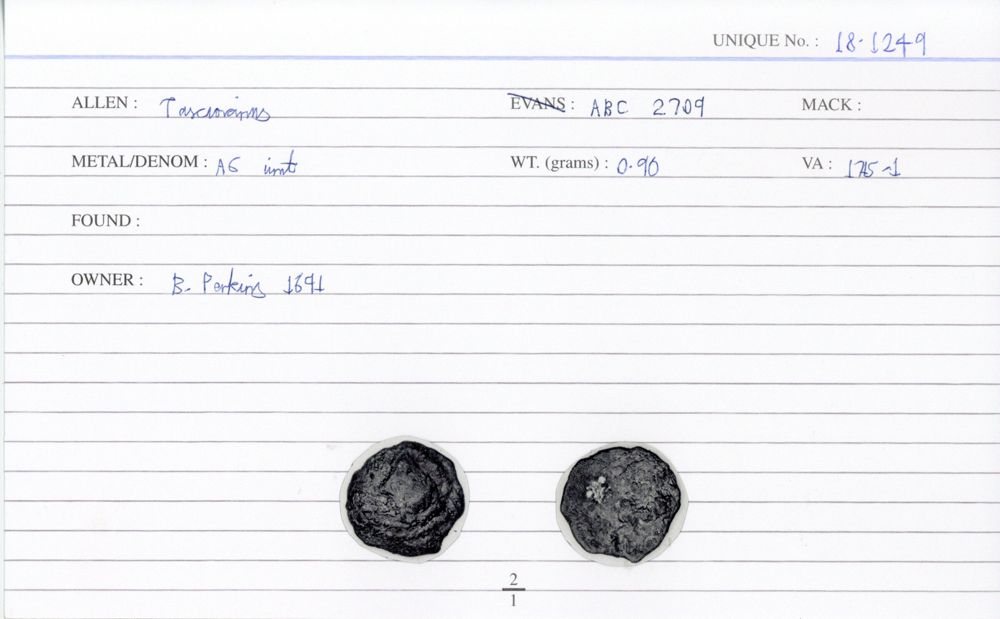 UNIQUE No. : 18-1249
ALLEN : EVANS : ABC 2709 MACK :
METAL/DENOM : unit WT. (grams) : 0.90 VA : 1745-1
FOUND :
OWNER : B. Perkins 1691
2
1